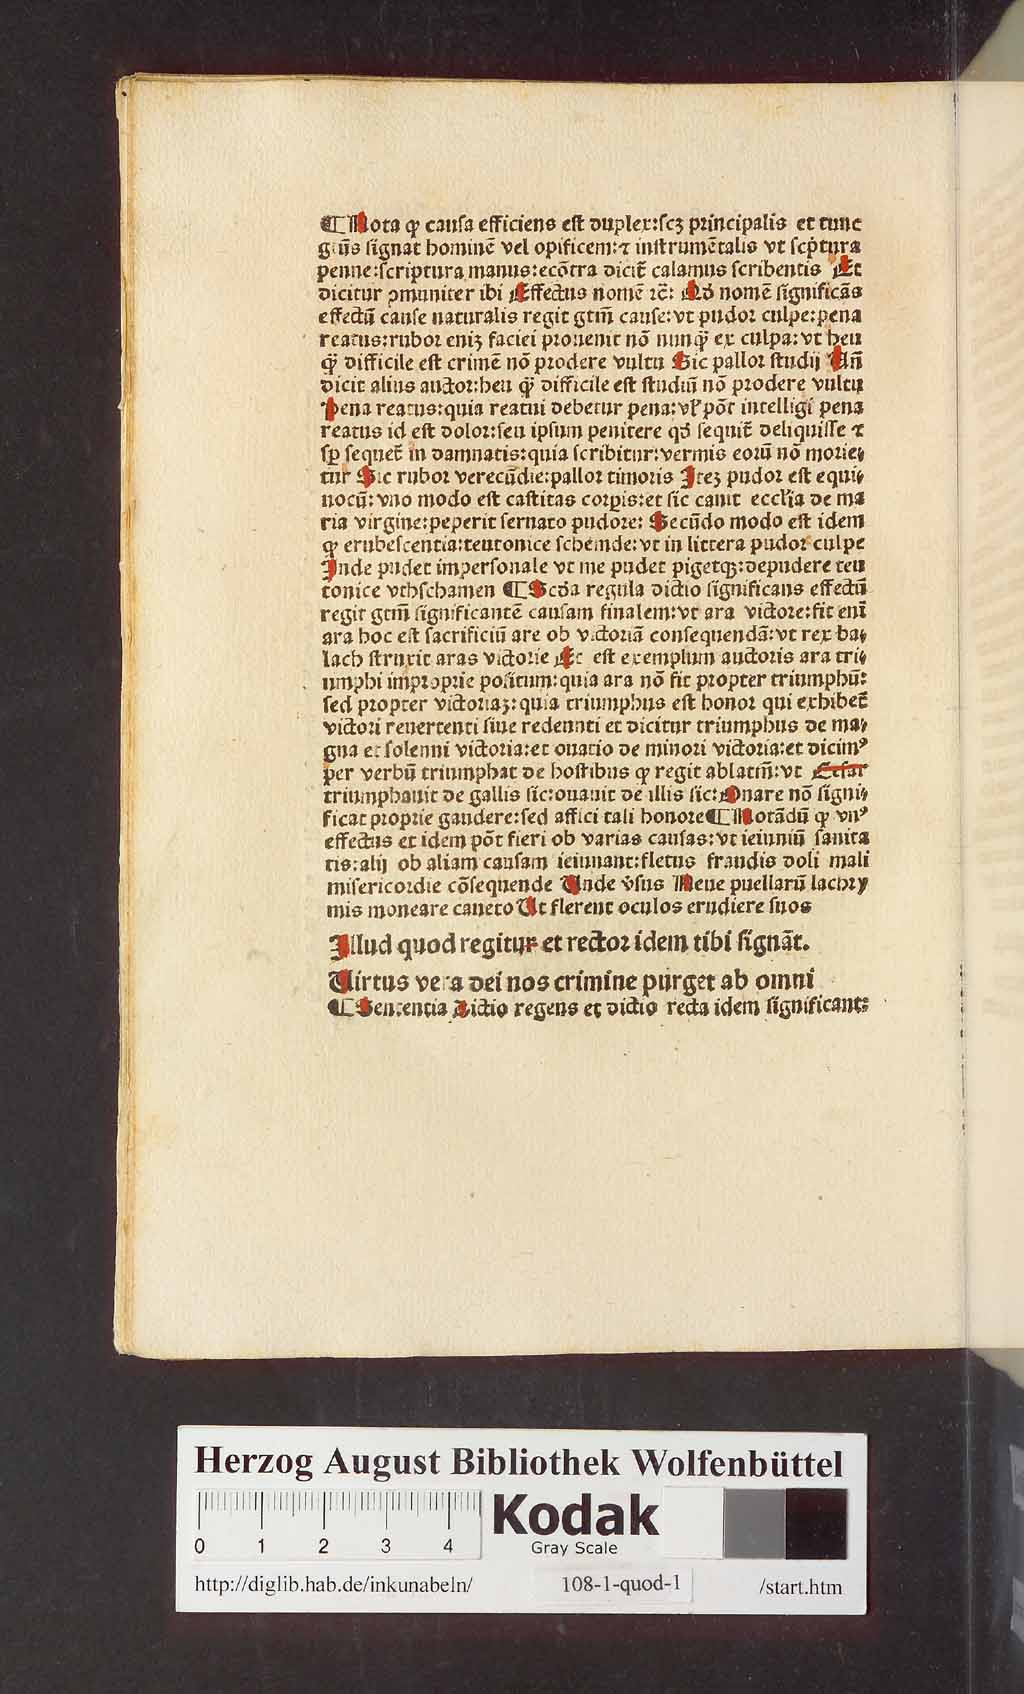 ¶Nota ꝙ causa efficiens est duplex:scꝫ principalis et tunc
gt̄iūs signat hominē vel opificem:⁊ instrumētalis vt scp̄tura
penne:scriptura manus:ecōtra dicit̄ calamus scribentis Et
dicitur ꝯmuniter ibi Effectus nomē ⁊c̄: Qd̄ nomē significās
effectū cause naturalis regit gtm̄ cause:vt pudor culpe:pena
reatus:rubor eniꝫ faciei prouenit nō nunꝙ̄ ex culpa:vt heu
ꝙ̄ difficile est crimē nō prodere vultu Sic pallor studij Un̄
dicit alius auctor:heu ꝙ̄ difficile est studiū nō prodere vultu
Pena reatus:quia reatui debetur pena:vl̓ pōt intelligi pena
reatus id est dolor:seu ipsum penitere qd̄ sequit̄ deliquisse ⁊
sꝑ sequet̄ in damnatis:quia scribitur:vermis eorū nō morie⸗
tur Sic rubor verecūdie:pallor timoris Iteꝫ pudor est equi⸗
uocū:vno modo est castitas corꝑis:et sic canit eccl̓ia de ma
ria virgine:peperit seruato pudore: Secūdo modo est idem
ꝙ erubescentia:teutonice schemde:vt in littera pudor culpe
Inde pudet impersonale vt me pudet pigetqꝫ:depudere teu
tonice vthschamen ¶Scd̄a regula dictio significans effectū
regit gtm̄ significantē causam finalem:vt ara victore:fit eni̅
ara hoc est sacrificiū are ob victoriā consequendā:vt rex ba⸗
lach struxit aras victorie Et est exemplum auctoris ara tri⸗
umphi improprie positum:quia ara nō fit propter triumphū:
sed propter victoriaꝫ:quia triumphus est honor qui exhibet̄
victori reuertenti siue redeunti et dicitur triumphus de ma⸗
gna et solenni victoria:et ouatio de minori victoria:et dicimꝰ
per verbū triumphat de hostibus ꝙ regit ablatm̄:vt Cesar
triumphauit de gallis sic:ouauit de illis sic:Ouare nō signi⸗
ficat proprie gaudere:sed affici tali honore¶Notādū ꝙ vnꝰ
effectus et idem pōt fieri ob varias causas:vt ieiuniū sanita
tis:alij ob aliam causam ieiunant:fletus fraudis doli mali
misericordie cōsequende Unde v̓sus Neue puellarū lachry
mis moneare caueto Ut flerent oculos erudiere suos
Illud quod regitur et rector idem tibi signāt.
Uirtus vera dei nos crimine purget ab omni
¶Sentencia Dictio regens et dictio recta idem significant:
Herzog August Bibliothek Wolfenbüttel
0 1 2 3 4
Kodak
Gray Scale
http://diglib.hab.de/inkunabeln/ 108-1-quod-1 /start.htm